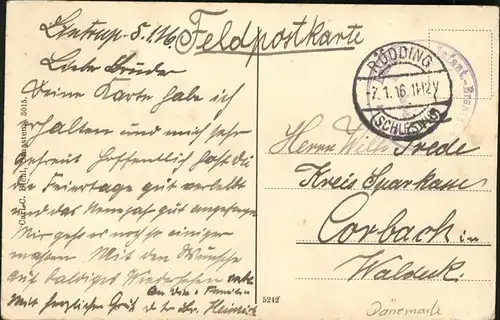 Lintrup 5.1.16
Feldpostkarte
Liebe Bruder
Deine Karte habe ich
erhalten und mich sehr
gefreut hoffentlich hast Du
die Feiertage gut verlebt
und das Neuejahr gut angefangen
Mir geht es noch so einiger
masten Mit dem Wunsche
auf baldiges Wiedersehen
Mit herzlichen Gruß Heinrich
Carl C. Biehl, 3015.
5242
RÖDDING
7.1.16. 11-12V
(SCHLESWIG)
Herrn Wilh. Frede
Kreis Sparkasse
Corbach in
Waldeck.
Dänemark